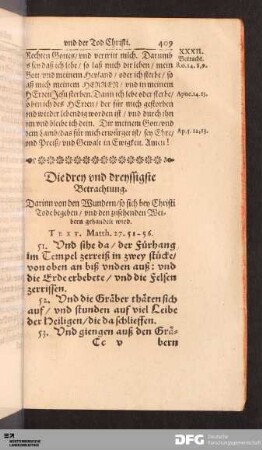 vnd der Tod Christi. 409
Rechten Gottes/ vnd vertrit mich. Darumb
so laß mich dir leben/ mein
Gott vnd meinem Heyland/ oder ich sterbe/ so
meinem HERREN/ in meinem
HErrn Jesu sterben. Dann ich lebe oder sterbe/
so bin ich des HErrn/ der für mich gestorben
vnd wieder lebendig worden ist/ vnd durch ihn
vnd bleibe ich dein. Dir meinem Gott vnd
dem Lamb/ das für mich erwürget ist/ sey Ehr/
vnd Preiß/ vnd Gewalt in Ewigkeit. Amen!
XXXII.
Betracht.
Ro.14.8,9.
Apoc.14.13.
Ap.5.12,13.
Die drey vnd dreyssigste
Betrachtung.
Darinn von den Wundern/ so sich bey Christi
Tode begeben/ vnd den zusehenden Wei-
bern gehandelt wird.
TEXT. Matth. 27. 51-56.
51. Vnd sihe da/ der Fürhang
im Tempel zerreiß in zwey stücke/
von oben an biß vnden auß: vnd
die Erde erbebete/ vnd die Felsen
zerrissen.
52. Vnd die Gräber thäten sich
auf/ vnd stunden auf viel Leibe
der Heiligen/ die da schlieffen.
53. Vnd giengen auß den Grä-
Cc v bern
DFG